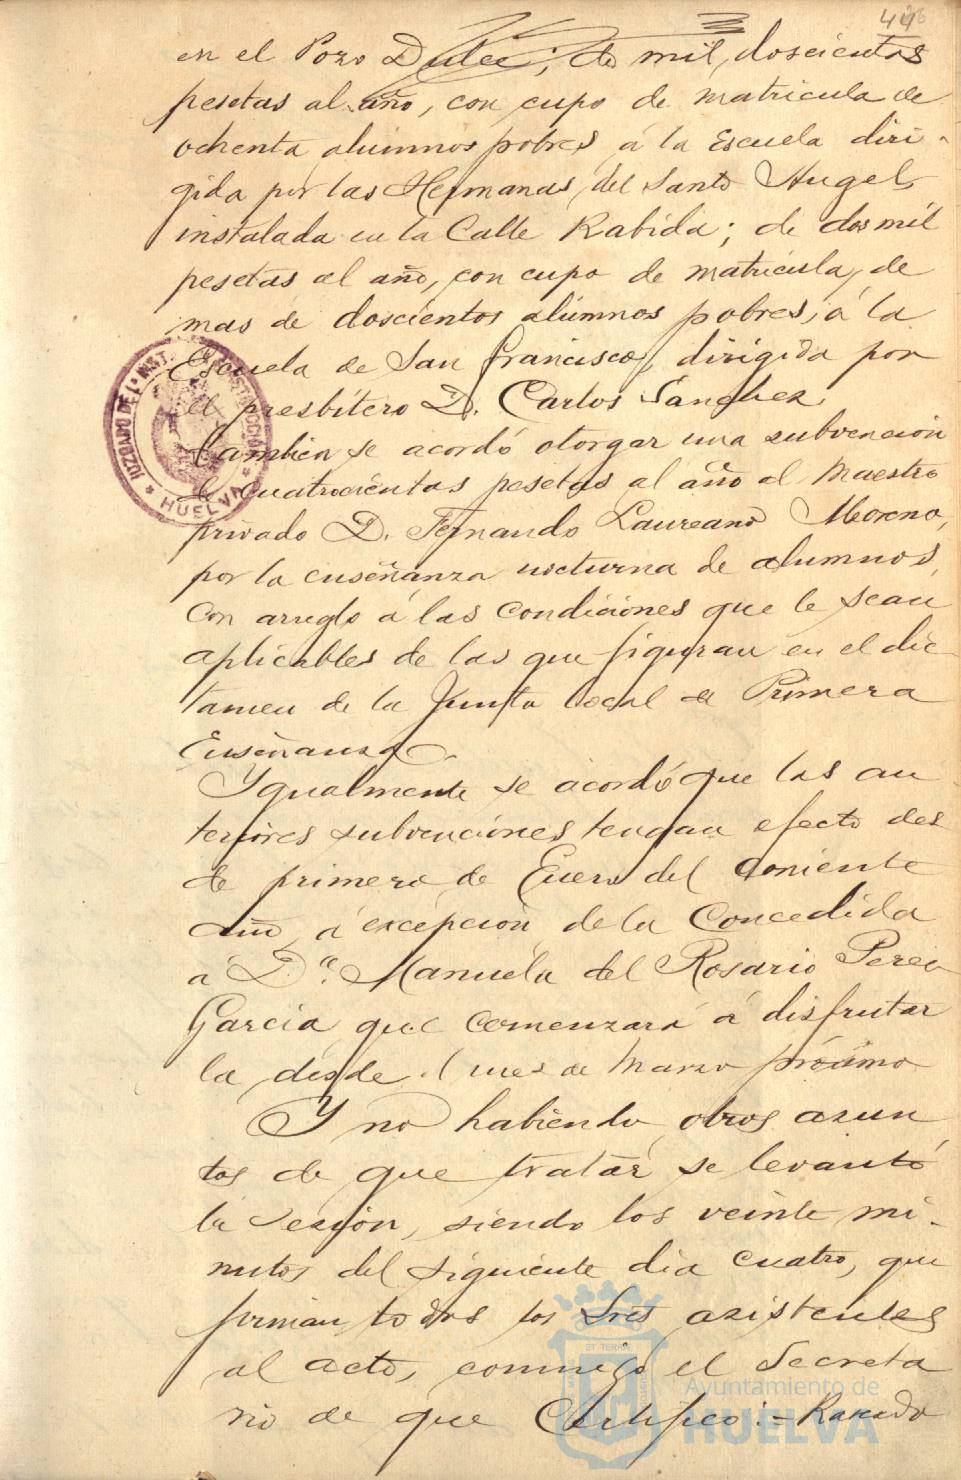 446
en el Pozo Dulce; de mil doscientas
pesetas al año, con cupo de matricula de
ochenta alumnos pobres á la Escuela diri-
gida por las Hermanas del Santo Angel,
instalada en la Calle Rabida; de dos mil
pesetas al año, con cupo de matricula, de
mas de doscientos alumnos pobres, á la
Escuela de San Francisco, dirigida por
el presbítero D. Carlos Sánchez.
Tambien se acordó otorgar una subvencion
de cuatrocientas pesetas al año al Maestro
privado D. Fernando Laureano Moreno,
por la enseñanza nocturna de alumnos,
con arreglo á las condiciones que le sean
aplicables de las que figuran en el dic-
tamen de la Junta local de Primera
Enseñanza.
Ygualmente se acordó que las an
teriores subvenciones tengan efecto des
de primero de Enero del corriente
año, á excepcion de la Concedida
á Dª. Manuela del Rosario Perea
Garcia que comenzará á disfrutar
la desde el mes de Marzo próximo
Y no habiendo otros asun
tos de que tratar se levantó
la Sesión, siendo los veinte mi-
nutos del siguiente dia cuatro, que
firman todos los Sres asistentes
al acto, conmigo el Secreta
rio de que Certifico:-
JUZGADO DE 1ª INST.
HUELVA
Ayuntamiento de
HUELVA